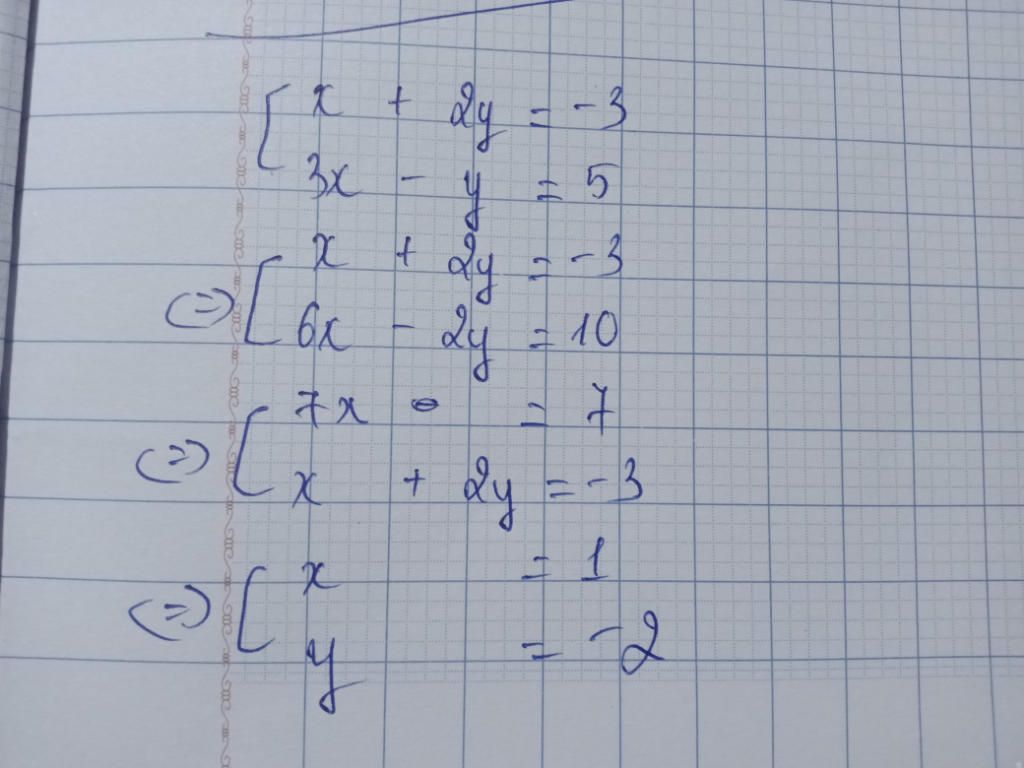 x + 2y = -3
3x - y = 5
(=) x + 2y = -3
6x - 2y = 10
(=) 7x = 7
x + 2y = -3
(=) x = 1
y = -2